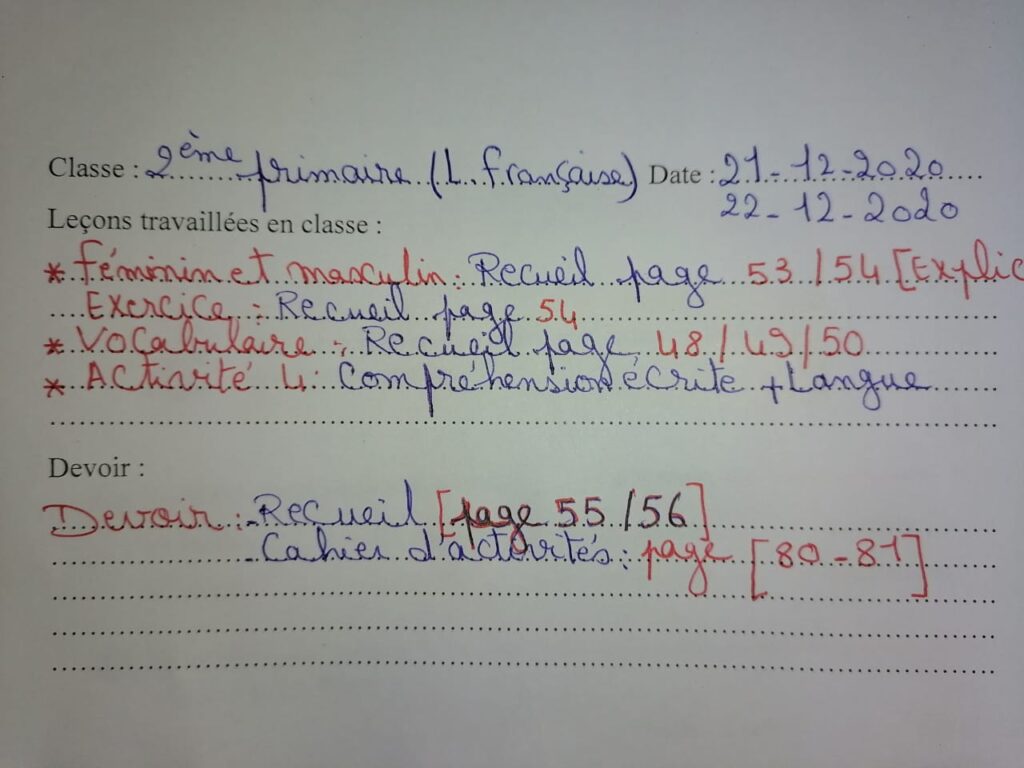 Classe : 2ème primaire (L. française) Date : 21-12-2020
22-12-2020
Leçons travaillées en classe :
* Féminin et masculin : Recueil page 53/54 [Explic
Exercice : Recueil page 54
* Vocabulaire : Recueil page 48/49/50
* Activité 4 : Compréhension écrite + Langue
Devoir :
Devoir : - Recueil [page 55/56]
- Cahier d'activités : page [80-81]